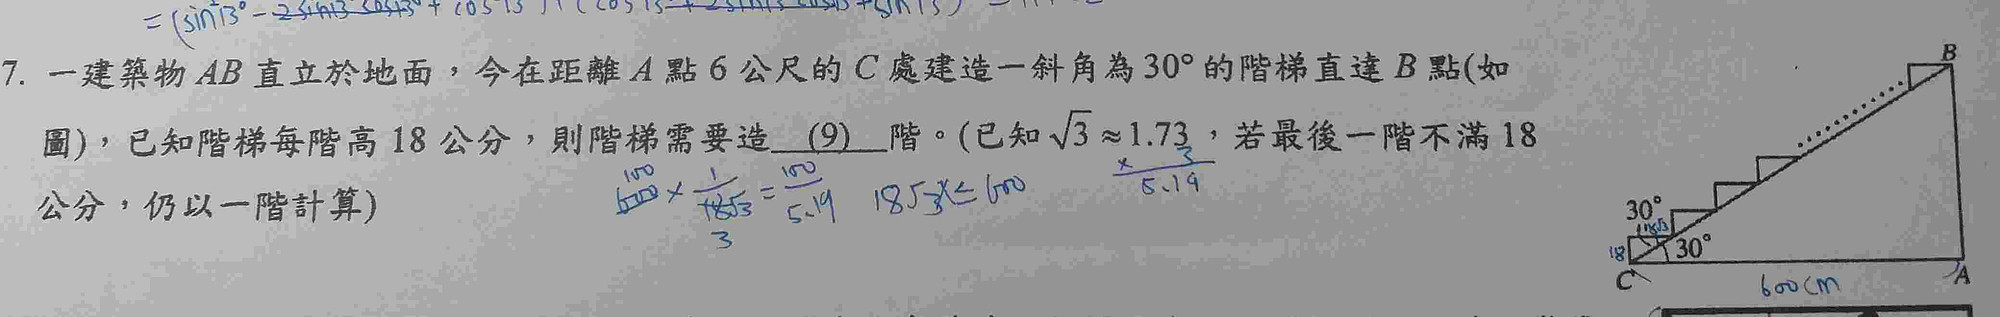 = (sin²13° - 2sin13°cos13° +
7. 一建築物 AB 直立於地面，今在距離 A 點 6 公尺的 C 處建造一斜角為 30° 的階梯直達 B 點(如
圖)，已知階梯每階高 18 公分，則階梯需要造 (9) 階。(已知 √3 ≈ 1.73，若最後一階不滿 18
公分，仍以一階計算)
100
600 × 1/18√3 = 100/5.19
3
18√3x ≤ 600
× 3
5.19
B
30°
18√3
18
30°
C
A
600cm